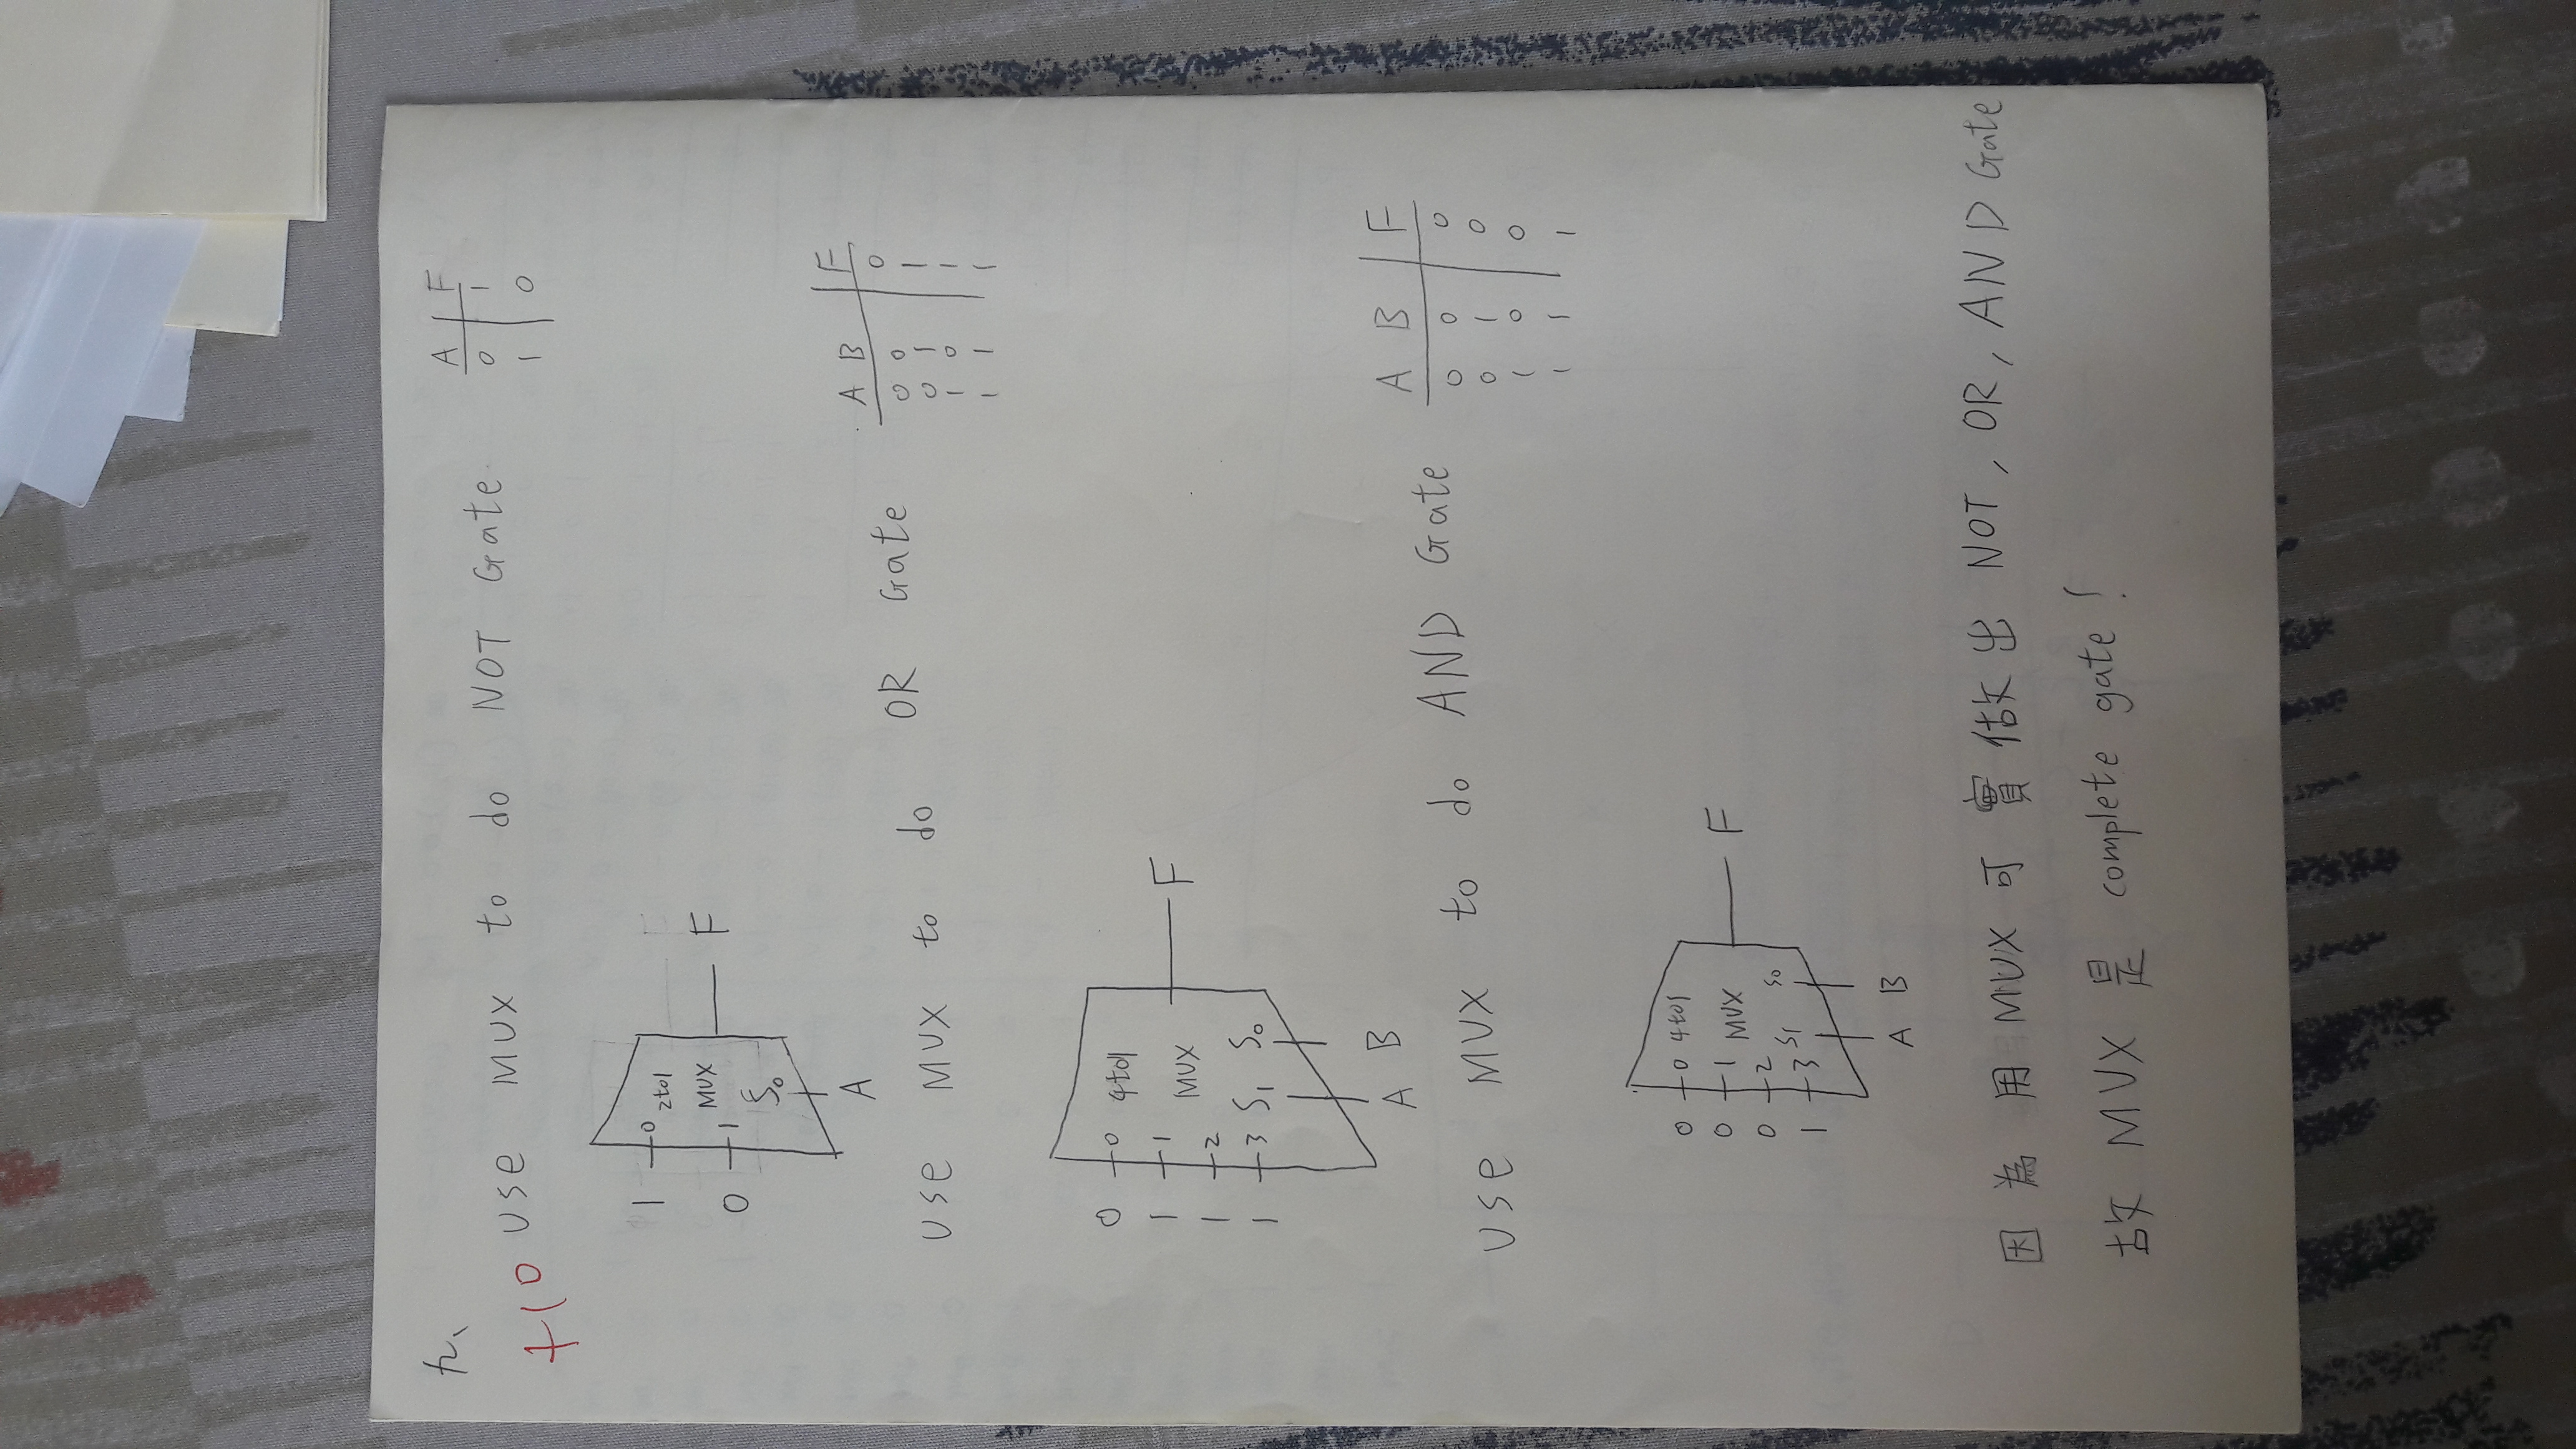 九、
+10
use MUX to do NOT Gate
A F
0 1
1 0
1 0 2to1
MUX
0 1
S0
F
A
use MUX to do OR Gate
A B F
0 0 0
0 1 1
1 0 1
1 1 1
0 0 4to1
1 1
MUX
1 2
1 3 S1 S0
F
A B
use MUX to do AND Gate
A B F
0 0 0
0 1 0
1 0 0
1 1 1
0 0 4to1
0 1 MUX
0 2
1 3 S1 S0
F
A B
因為用MUX可實做出 NOT, OR, AND Gate
故 MUX 是 complete gate!